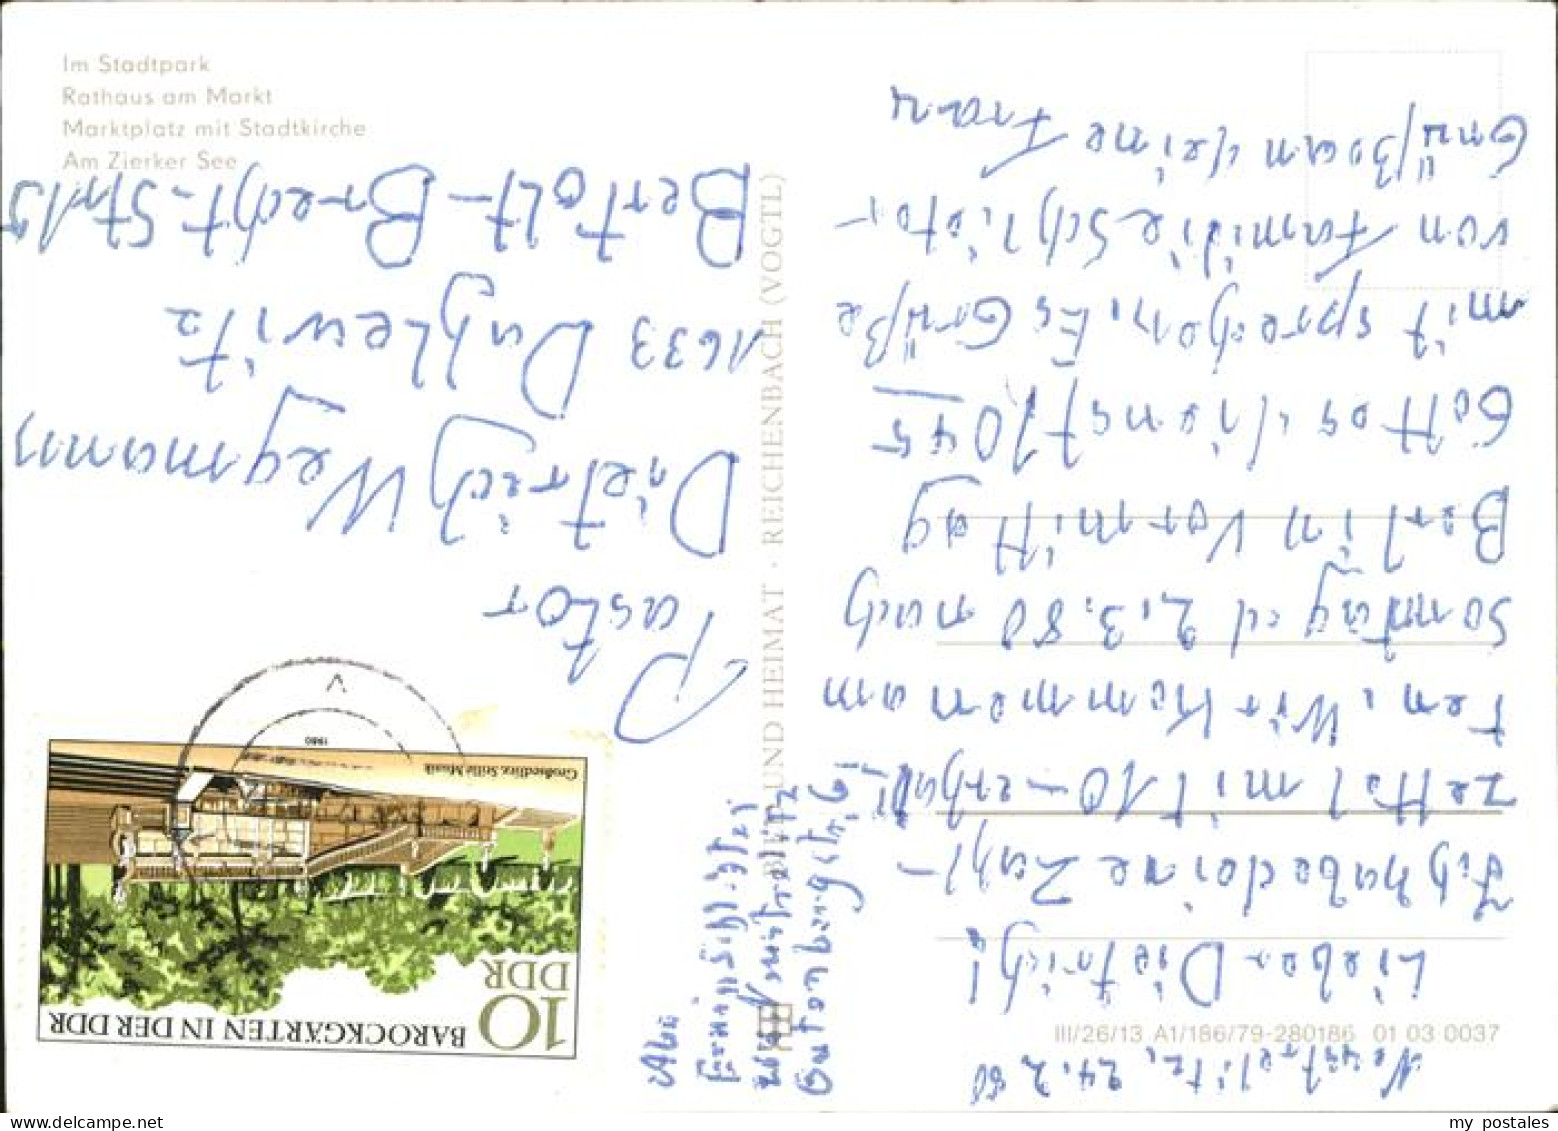 Im Stadtpark
Rathaus am Markt
Marktplatz mit Stadtkirche
Am Zierker See
BILD UND HEIMAT · REICHENBACH (VOGTL)
III/26/13 A1/186/79-280186 01 03 0037
Neustrelitz, 24.2.80
Lieber Dietrich!
Ich habe deine Zahl-
zettel mit 10- erhal-
ten. Wir kommen am
Sonntag d 2.3.80 nach
Berlin Vormittag
Gottesdienst 10 45
mit sprechen. Es Grüße
von Familie Schlieter
Grüße an deine Frau
BAROCKGÄRTEN IN DER DDR
10
DDR
Großsedlitz, Stille Musik
1980
V
Pastor
Dietrich Wegmann
1633 Dahlewitz
Bertolt-Brecht-Str 15
Abs
Neustrelitz
Gutenbergstr. 6
my postales